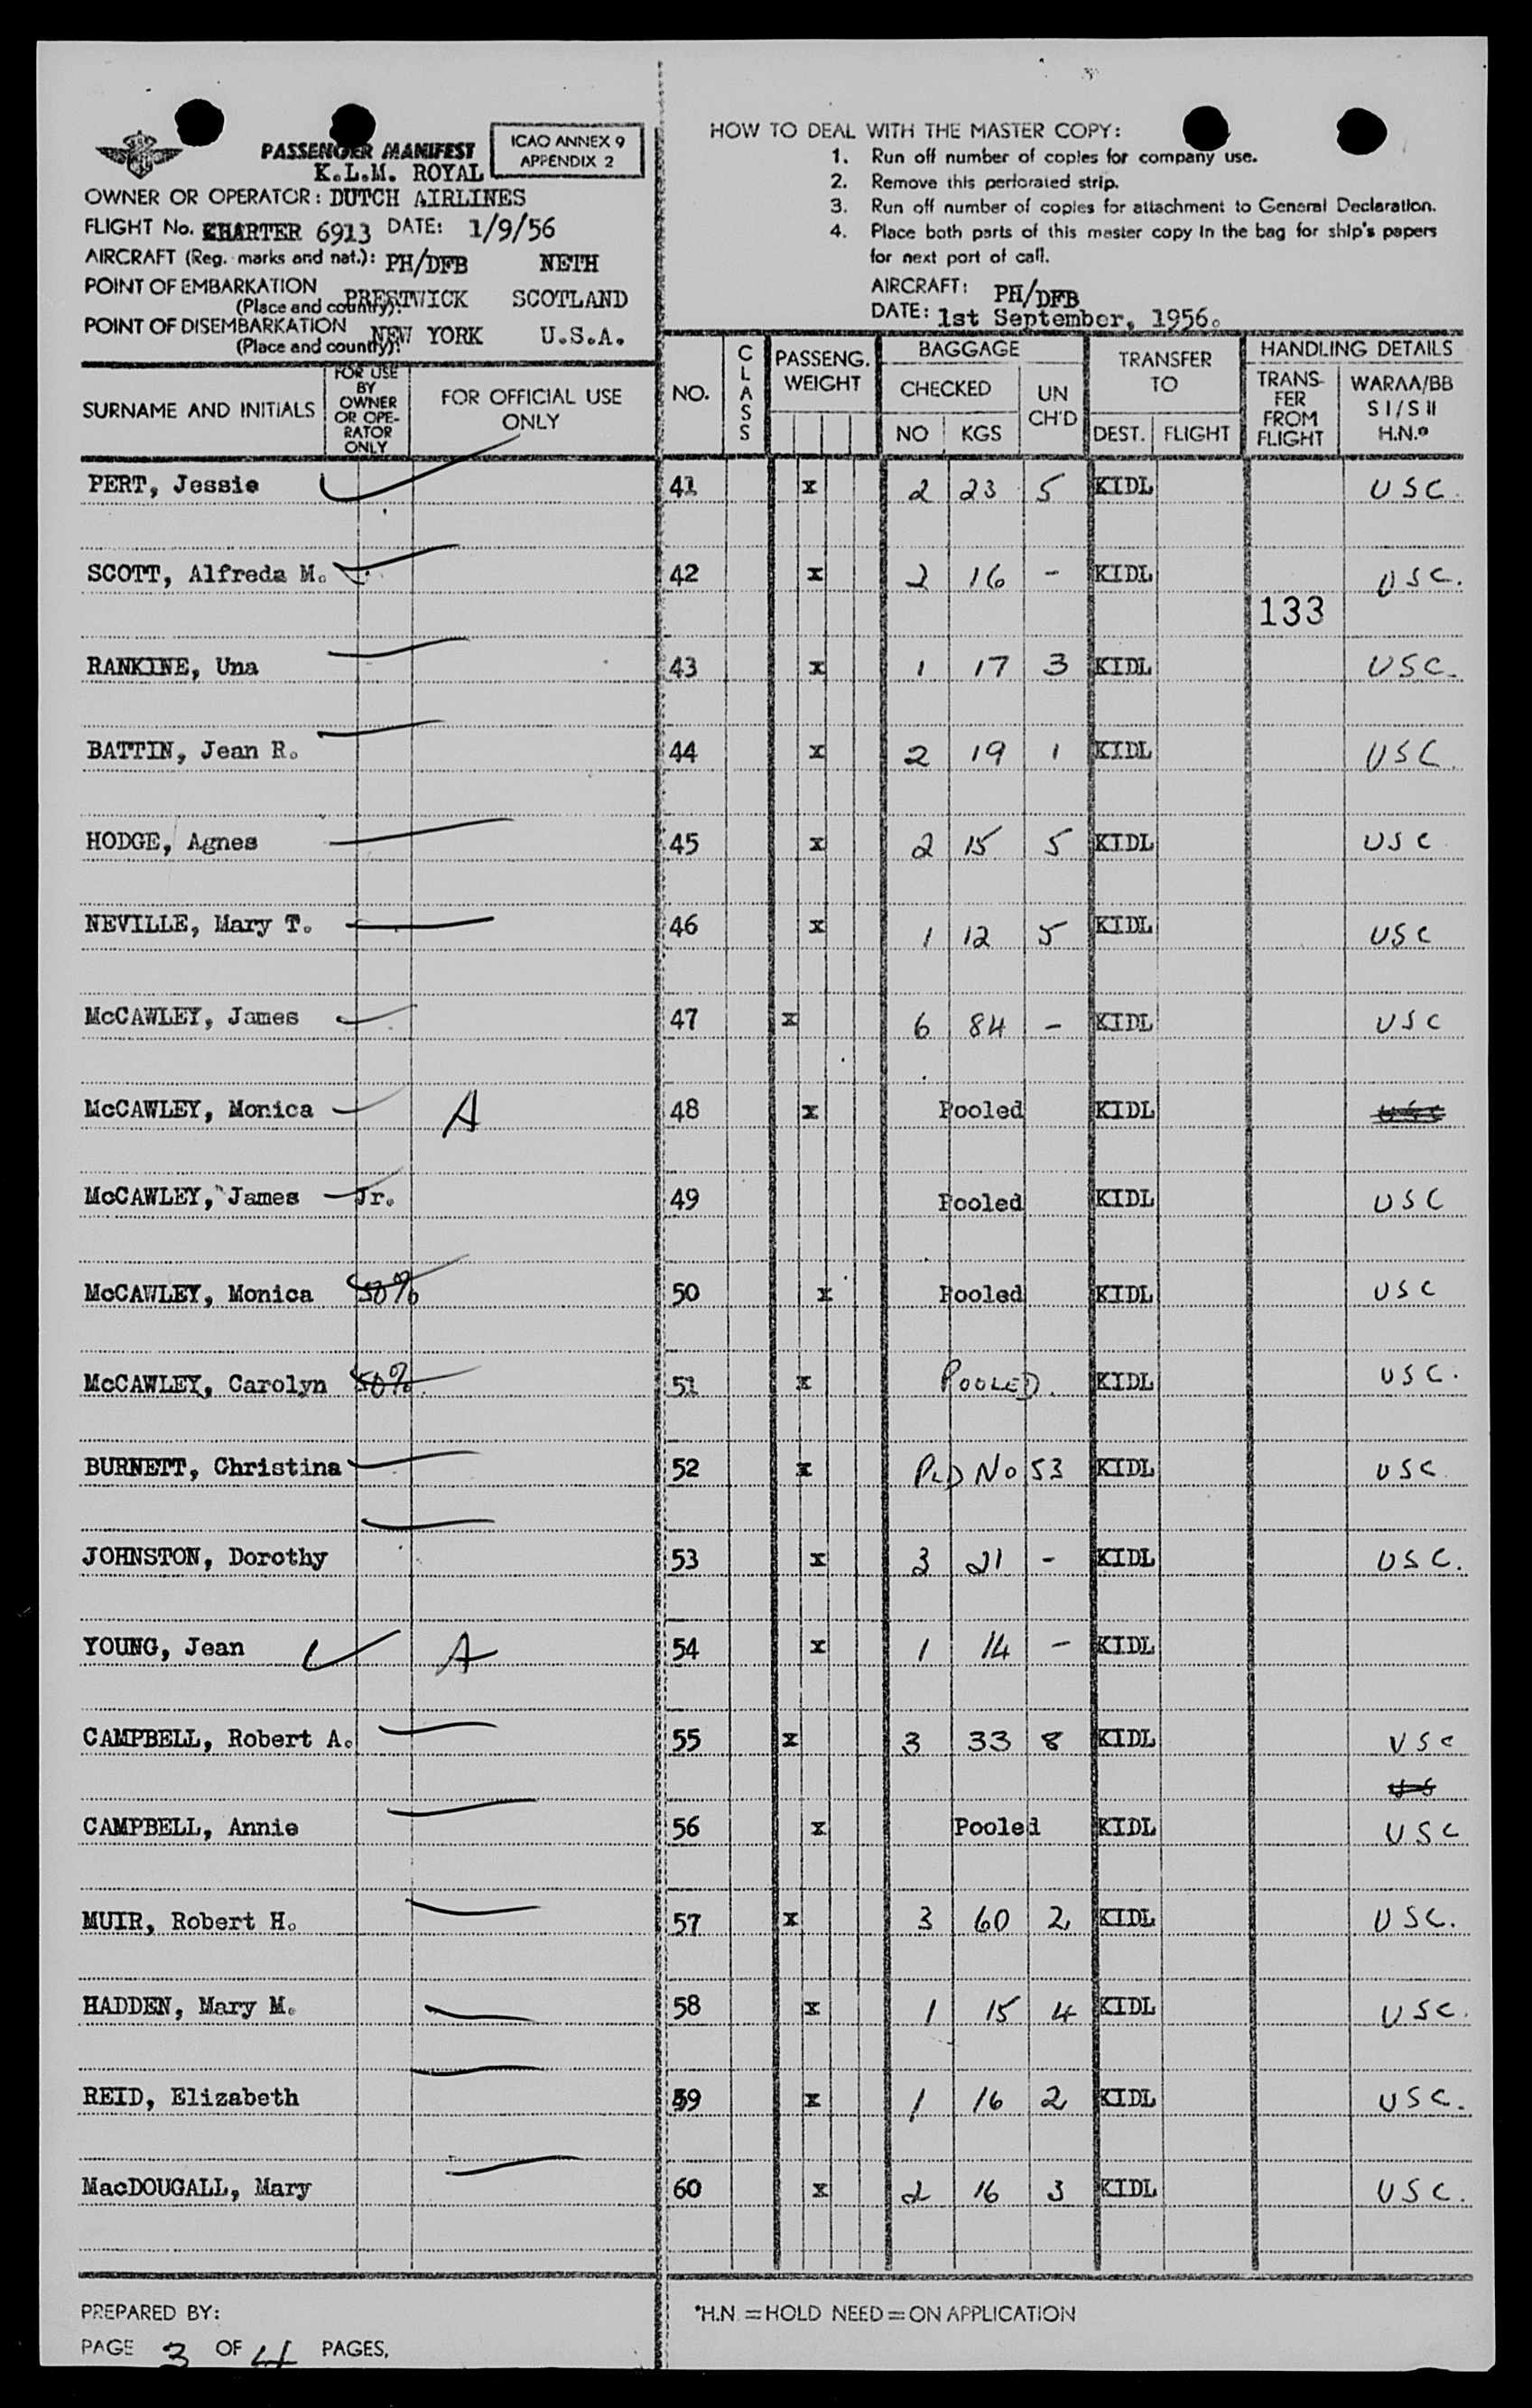 PASSENGER MANIFEST
ICAO ANNEX 9
APPENDIX 2
K.L.M. ROYAL
OWNER OR OPERATOR: DUTCH AIRLINES
FLIGHT No. CHARTER 6913 DATE: 1/9/56
AIRCRAFT (Reg. marks and nat.): PH/DFB NETH
POINT OF EMBARKATION
(Place and country): PRESTWICK SCOTLAND
POINT OF DISEMBARKATION
(Place and country): NEW YORK U.S.A.
HOW TO DEAL WITH THE MASTER COPY:
1. Run off number of copies for company use.
2. Remove this perforated strip.
3. Run off number of copies for attachment to General Declaration.
4. Place both parts of this master copy in the bag for ship's papers
for next port of call.
AIRCRAFT: PH/DFB
DATE: 1st September, 1956.
SURNAME AND INITIALS
FOR USE BY OWNER OR OPE- RATOR ONLY
FOR OFFICIAL USE ONLY
NO.
CLASS
PASSENG. WEIGHT
BAGGAGE
CHECKED
NO KGS
UN CH'D
TRANSFER TO
DEST. FLIGHT
HANDLING DETAILS
TRANS- FER FROM FLIGHT
WARAA/BB S I / S II H.N.*
PERT, Jessie 41 x 2 23 5 KIDL USC.
SCOTT, Alfreda M. 42 x 2 16 - KIDL USC.
133
RANKINE, Una 43 x 1 17 3 KIDL USC.
BATTIN, Jean R. 44 x 2 19 1 KIDL USC.
HODGE, Agnes 45 x 2 15 5 KIDL USC
NEVILLE, Mary T. 46 x 1 12 5 KIDL USC
McCAWLEY, James 47 x 6 84 - KIDL USC
McCAWLEY, Monica A 48 x Pooled KIDL USC
McCAWLEY, James Jr. 49 Pooled KIDL USC
McCAWLEY, Monica 50% 50 x Pooled KIDL USC
McCAWLEY, Carolyn 50%. 51 x POOLED. KIDL USC.
BURNETT, Christina 52 x PLD No 53 KIDL USC
JOHNSTON, Dorothy 53 x 3 21 - KIDL USC.
YOUNG, Jean A 54 x 1 14 - KIDL
CAMPBELL, Robert A. 55 x 3 33 8 KIDL USC
CAMPBELL, Annie 56 x Pooled KIDL USC
MUIR, Robert H. 57 x 3 60 2 KIDL USC.
HADDEN, Mary M. 58 x 1 15 4 KIDL USC.
REID, Elizabeth 59 x 1 16 2 KIDL USC.
MacDOUGALL, Mary 60 x 2 16 3 KIDL USC.
PREPARED BY:
PAGE 3 OF 4 PAGES.
*H.N. = HOLD NEED = ON APPLICATION